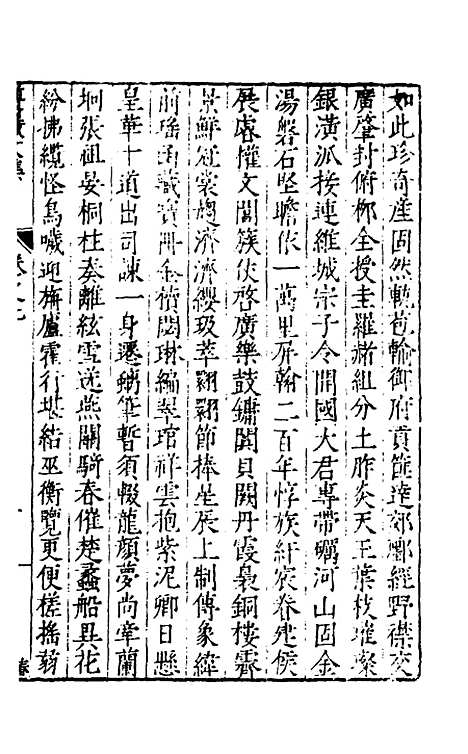 如此珍奇産固然軌苞輸御府貢篚達郊鄽經野襟交
廣肇封俯柳全授圭羅赭組分土胙炎天王葉枝璀璨
銀潢派接連維城宗子今開國大君專帶礪河山固金
湯磐石堅瞻依一萬里屏翰二百年惇族紆宸眷建侯
展睿懽文閣簇伏啓廣樂鼓鏞闐貝闕丹霞裊銅樓霽
景鮮冠裳趨濟濟纓珮萃翩翩節捧坐辰上制傳象緯
前瑤函藏寶冊金橫閟琳編翠琯祥雲抱紫泥卿日懸
皇華十道出司諫一身遷鎬筆暫須輟龍顏夢尚牽蘭
坰張祖晏桐柱奏離絃雪送燕關騎春催楚蠡船異花
紛拂纜怪鳥噦迎旃廬霍行堪結巫衡覽更便槎搖蒻